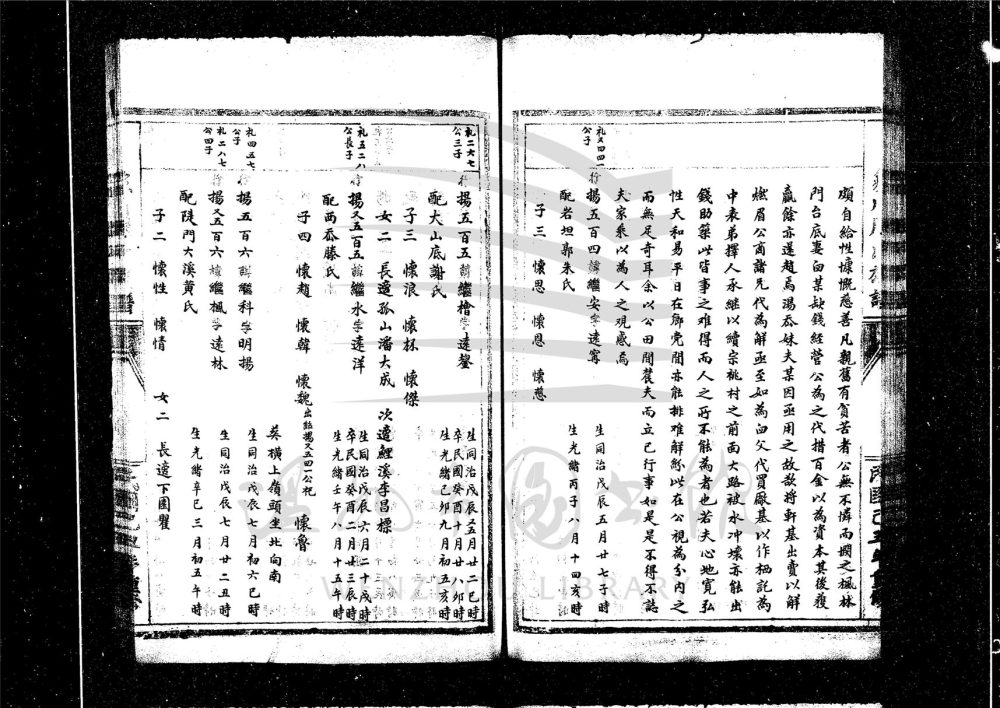 頗自給性慷慨慈善凡親舊有貧苦者公無不憐而賙之楓林
門台底妻白某缺錢經營公為之代措百金以為資本其後獲
贏餘亦遂趙焉湯岙妹夫某因亟用之故欲將軒基出賣以解
燃眉公商諸兄代為解亟至如為白父代買廠基以作栖託為
中表弟擇人承繼以續宗祧村之前面大路被水冲壞亦能出
錢助築此皆事之难得而人之所不能為者也若夫心地寬弘
性天和易平日在鄉党間亦能排难解紛此在公視為分内之
而無足奇耳余以公田間農夫而立己行事如是是不得不誌
夫家乘以為人之观感焉
礼又四四一
公子
行揚五百四諱繼安字遠甯
生同治戊辰五月廿七子時
配岩坦郭朱氏
生光緒丙子八月十四亥時
子三 懷恩 懷恩 懷慈
礼二六七
公三子
行揚五百五諱繼檜字遠鋆
生同治戊辰五月廿二巳時
卒民國癸酉十月廿八卯時
配大山底謝氏
生光緒己卯九月初五亥時
子三 懷浪 懷杯 懷傑
女二 長適孤山潘大成 次適鯉溪李昌標
礼五二八
公長子
行揚又五百五諱繼水字遠洋
生同治戊辰六月二十戌時
卒民國癸酉二月廿三辰時
配西岙藤氏
生光緒壬午八月十五午時
子四 懷趙 懷韓 懷魏出継揚又五四一公祀 懷魯
葬横上嶺頭坐北向南
礼四五七
公子
行揚五百六諱繼科字明揚
生同治戊辰七月初六巳時
礼二八七
公四子
行揚又五百六諱繼楓字遠林
生同治戊辰七月廿二丑時
配陡門大溪黄氏
生光緒辛巳三月初五午時
子二 懷性 懷情 女二 長適下園瞿
温州圖書館
WENZHOU LIBRARY